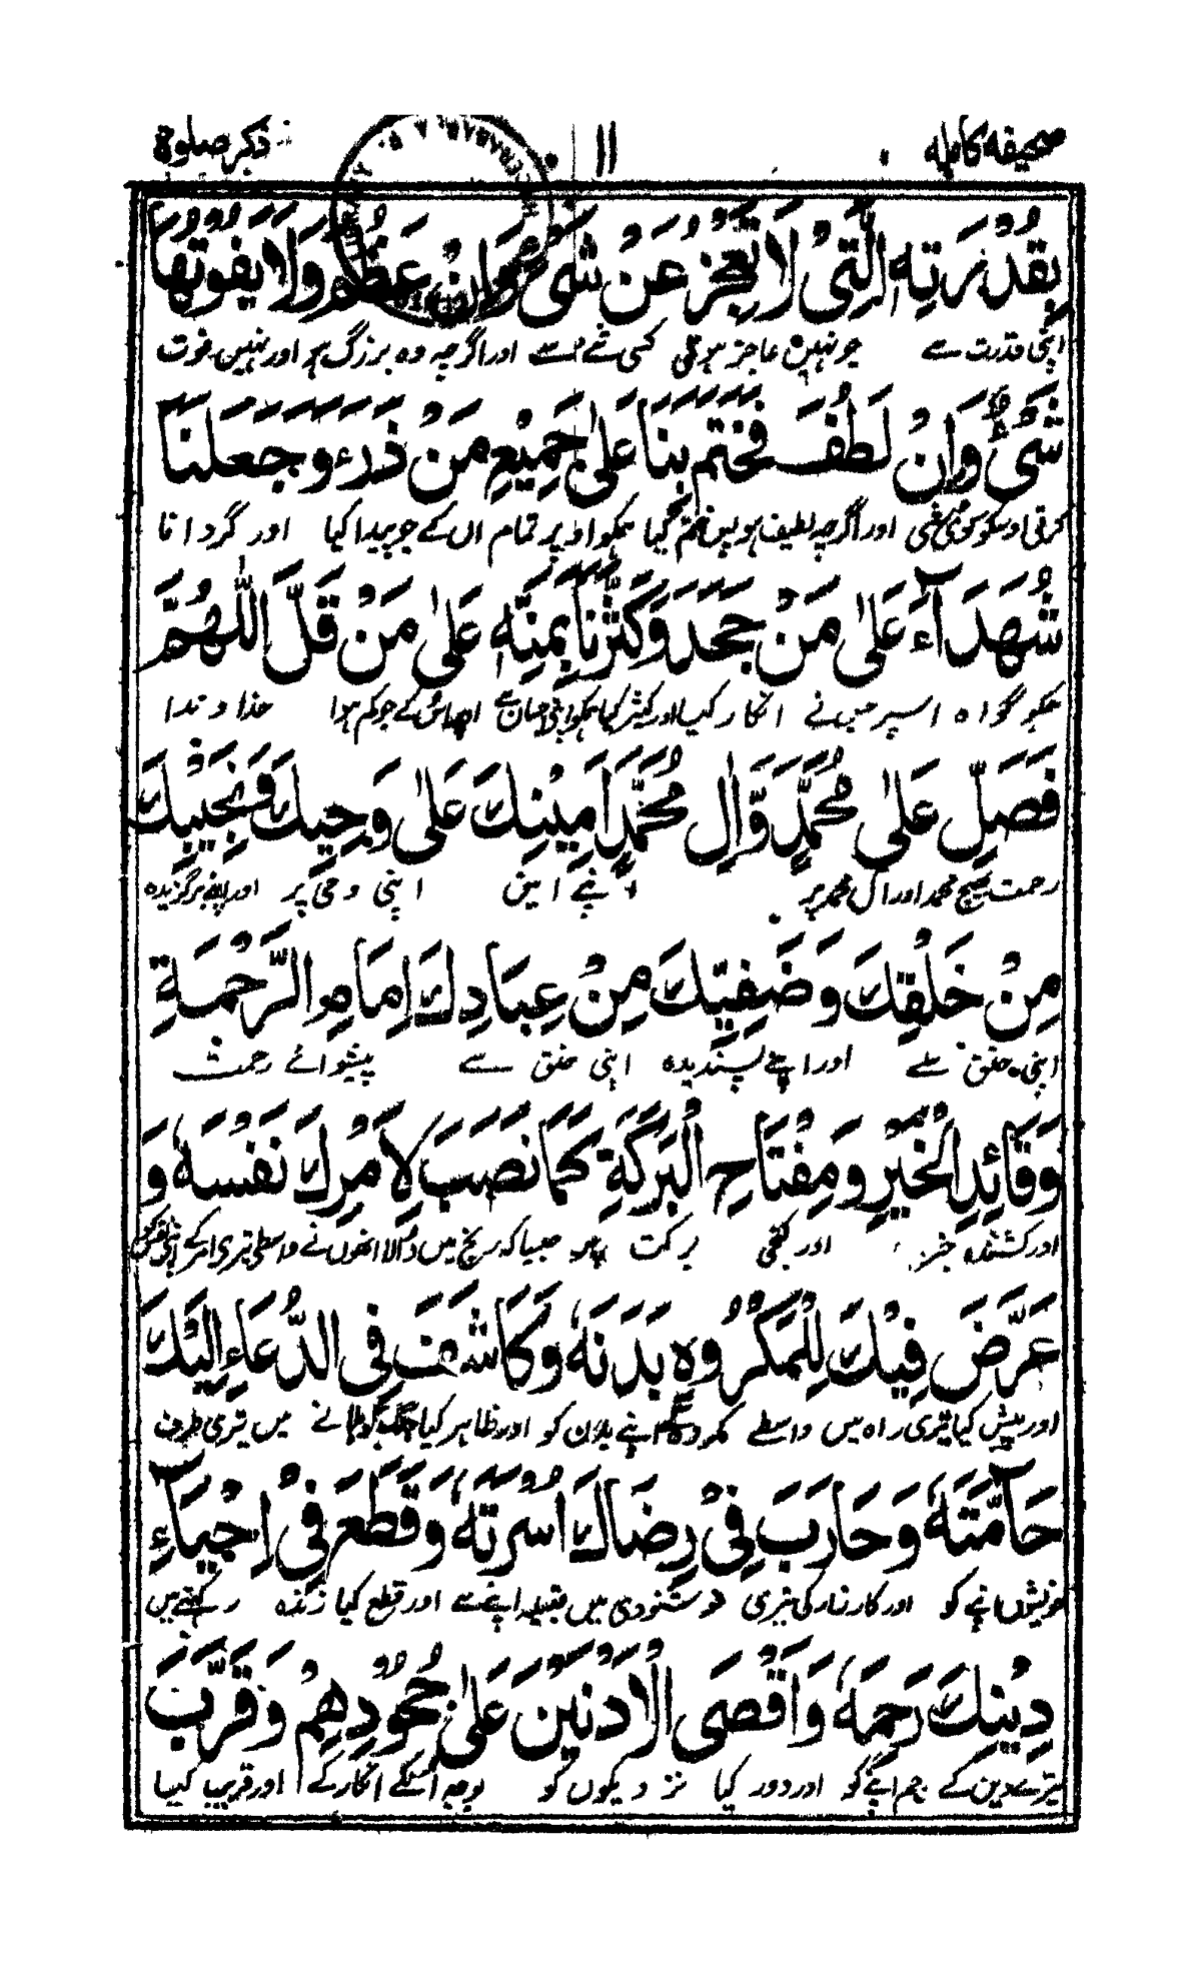 صحیفہ کاملہ ١١ ذکر صلوة
بِقُدْرَتِهِ الَّتِيْ لَا تَعْجِزُ عَنْ شَيْءٍ وَاِنْ عَظُمَ وَلَا يَفُوْتُهَا
اپنی قدرت سے جو نہیں عاجز ہوتی کسی شے سے اور اگرچہ وہ بزرگ ہو اور نہیں فوت
شَيْءٌ وَاِنْ لَطُفَ فَخَتَمَ بِنَا عَلٰى جَمِيْعِ مَنْ ذَرَءَ وَجَعَلَنَا
کرتی اوسکو کوئی شی اور اگرچہ لطیف ہو پس ختم کیا ہمکو اوپر تمام اں کے جو پیدا کیا اور گردانا
شُهَدَآءَ عَلٰى مَنْ جَحَدَ وَكَثَّرَنَا بِمَنِّهٖ عَلٰى مَنْ قَلَّ اَللّٰهُمَّ
ہمکو گواہ اسپر جس نے انکار کیا اور کثیر کیا ہمکو اپنی احسان سے کے جو کم ہوا خداوندا
فَصَلِّ عَلٰى مُحَمَّدٍ وَّاٰلِ مُحَمَّدٍ اَمِيْنِكَ عَلٰى وَحْيِكَ وَنَجِيْبِكَ
رحمت بھیج محمد اور آل محمد پر اپنے امین اپنی وحی پر اور اپنے برگزیدہ
مِنْ خَلْقِكَ وَصَفِيِّكَ مِنْ عِبَادِكَ اِمَامِ الرَّحْمَةِ
اپنی خلق سے اور اپنے پسندیدہ اپنی خلق سے پیشوائے رحمت
وَقَائِدِ الْخَيْرِ وَمِفْتَاحِ الْبَرَكَةِ كَمَا نَصَبَ لِاَمْرِكَ نَفْسَهٗ وَ
اور کشندہ خیر اور کنجی برکت جیسا کہ رنج میں ڈالا انھوں نے واسطے تیری امر کے اپنی نفس کو
عَرَّضَ فِيْكَ لِلْمَكْرُوْهِ بَدَنَهٗ وَكَاشَفَ فِى الدُّعَاءِ اِلَيْكَ
اور پیش کیا تیری راہ میں واسطے مکروہ کے اپنے بدن کو اور ظاہر کیا میں تیری طرف
حَآمَّتَهٗ وَحَارَبَ فِيْ رِضَاكَ اُسْرَتَهٗ وَقَطَعَ فِيْ اِحْيَآءِ
خویشوں اپنے کو اور کارزار کی تیری خوشنودی میں قبیلہ اپنے سے اور قطع کیا زندہ رکھنے میں
دِيْنِكَ رَحِمَهٗ وَاَقْصَى الْاَدْنَيْنَ عَلٰى جُحُوْدِهِمْ وَقَرَّبَ
تیرے دین کے رحم اپنے کو اور دور کیا نزدیکوں کو بوجہ انکے انکار کے اور قریب کیا